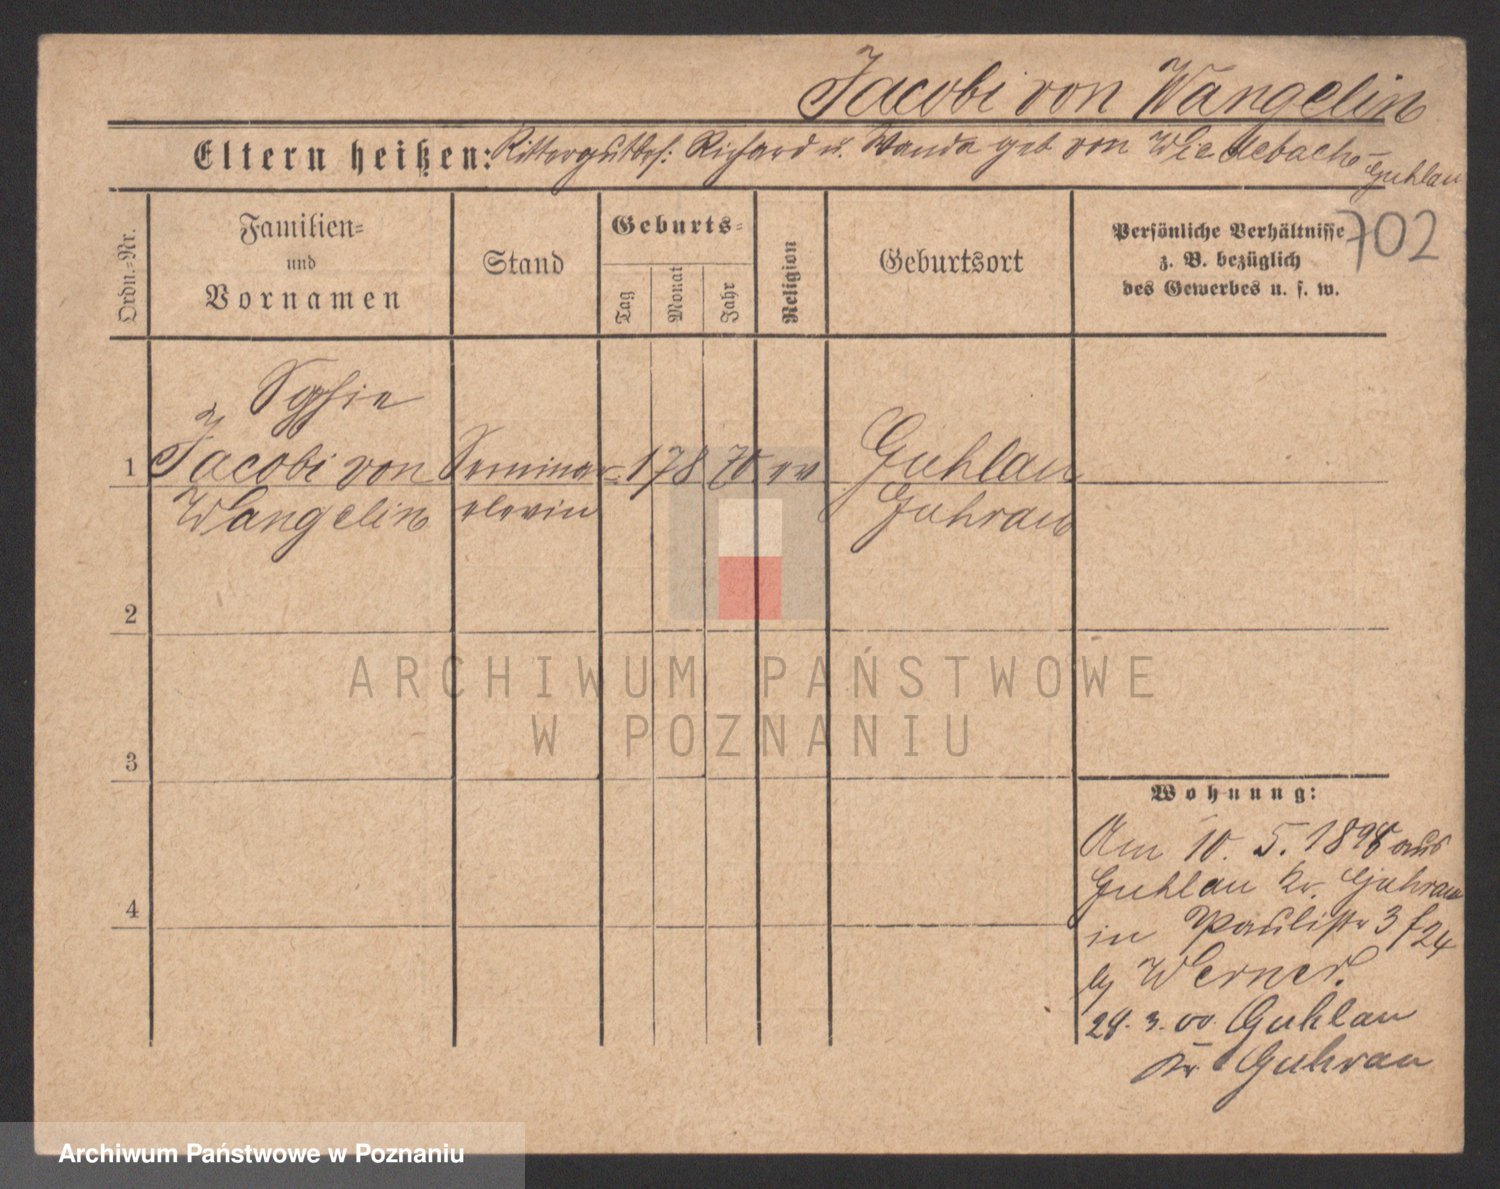 Jacobi von Wangelin
Eltern heißen: Rittergutbes: Richard u. Wanda geb von Wiedebach-
Guhlau
702
Ordn.-Nr.
Familien-
und
Vornamen
Stand
Geburts-
Tag
Monat
Jahr
Religion
Geburtsort
Persönliche Verhältnisse
z. B. bezüglich
des Gewerbes u. s. w.
Sophie
1 Jacobi von Seminar= 17 8 70 ev Guhlau
Wangelin elevin Guhrau
2
3
4
Wohnung:
Am 10. 5. 1898 aus
Guhlau Kr. Guhrau
in Paulistr 3 f 24
bj Werner.
28. 3. 00 Guhlau
Kr Guhrau
ARCHIWUM PAŃSTWOWE
W POZNANIU
Archiwum Państwowe w Poznaniu